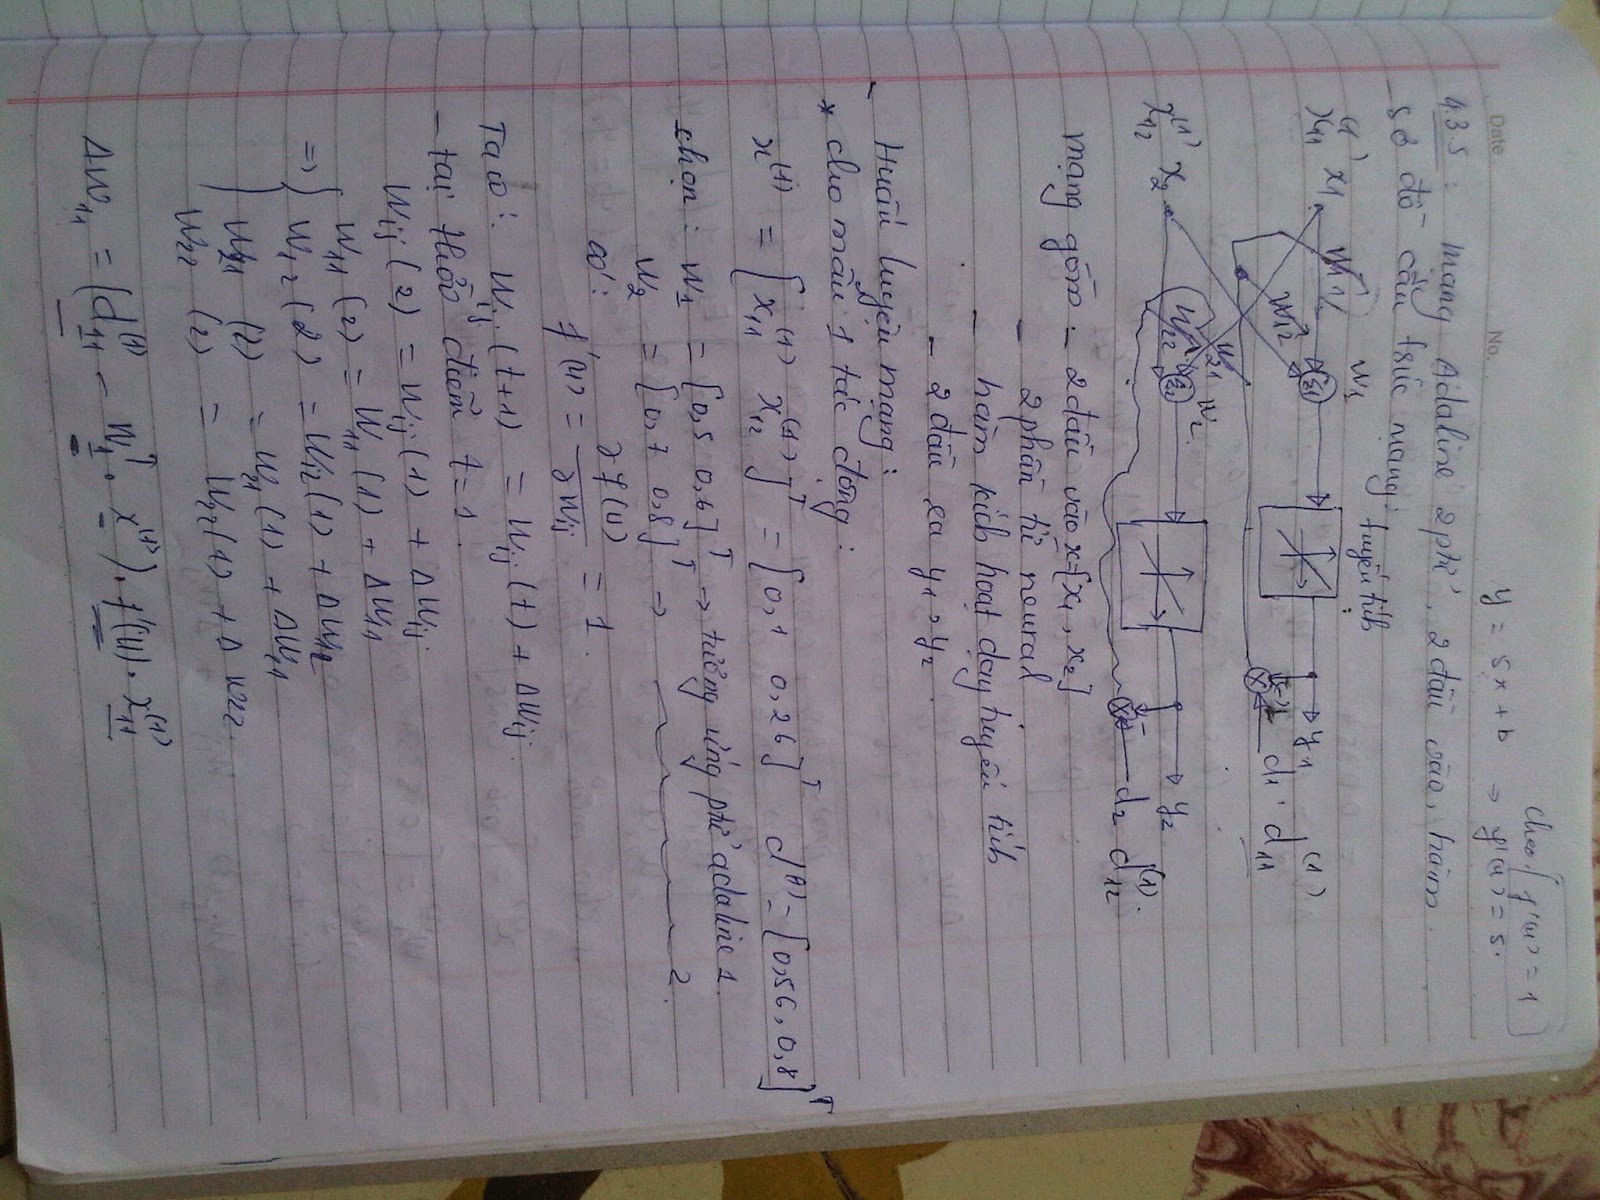 cheo f'(u) = 1
y = 5x + b → y'(u) = 5.
Date No.
4.3.5 : mạng Adaline 2 ptử, 2 đầu vào, hàm
- Sơ đồ cấu trúc mạng tuyến tính
x₁₁⁽¹⁾ x₁ W₁₁ W₁ Σ₁ y₁
W₁₂ d₁ . d₁₁⁽¹⁾
W₂₁ W₂
x₁₂⁽¹⁾ x₂ W₂₂ Σ₂ y₂
d₂ d₁₂⁽¹⁾.
mạng gồm - 2 đầu vào x = [x₁, x₂]
- 2 phần tử nơural
- hàm kích hoạt dạng tuyến tính
- 2 đầu ra y₁, y₂.
- Huấn luyện mạng:
* cho mẫu 1 tác động:
x⁽¹⁾ = [x₁₁⁽¹⁾ x₁₂⁽¹⁾]ᵀ = [0,1 0,26]ᵀ d⁽¹⁾ = [0,56, 0,8]ᵀ
chọn: W₁ = [0,5 0,6]ᵀ → tương ứng ptử adaline 1.
W₂ = [0,7 0,8]ᵀ → 2.
có: f'(u) = ∂f(u) / ∂Wij = 1.
Ta có: Wij (t+1) = Wij (t) + ΔWij
- tại thời điểm t = 1.
Wij (2) = Wij (1) + ΔWij
W₁₁ (2) = W₁₁ (1) + ΔW₁₁
=> W₁₂ (2) = W₁₂ (1) + ΔW₁₂
W₂₁ (2) = W₂₁ (1) + ΔW₂₁
W₂₂ (2) = W₂₂ (1) + ΔW₂₂
ΔW₁₁ = (d₁₁⁽¹⁾ - W₁ᵀ . x⁽¹⁾) . f'(u) . x₁₁⁽¹⁾